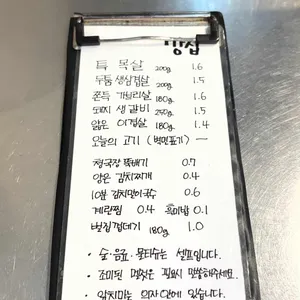 특 목살 200g 1.6
두툼 생삼겹살 200g 1.5
쫀득 가브리살 180g 1.6
돼지 생갈비 250g 1.5
얇은 이겹살 180g 1.4
오늘의 고기 (벽면표기) —
청국장 뚝배기 0.7
양은 김치찌개 0.4
10분 김치말이국수 0.6
계란찜 0.4 흑미밥 0.1
벌집껍데기 180g 1.0
· 술, 음료, 물티슈는 셀프입니다.
· 조미된 명이은 필요시 말씀해주세요.
· 앞치마는 의자 안에 있습니다.